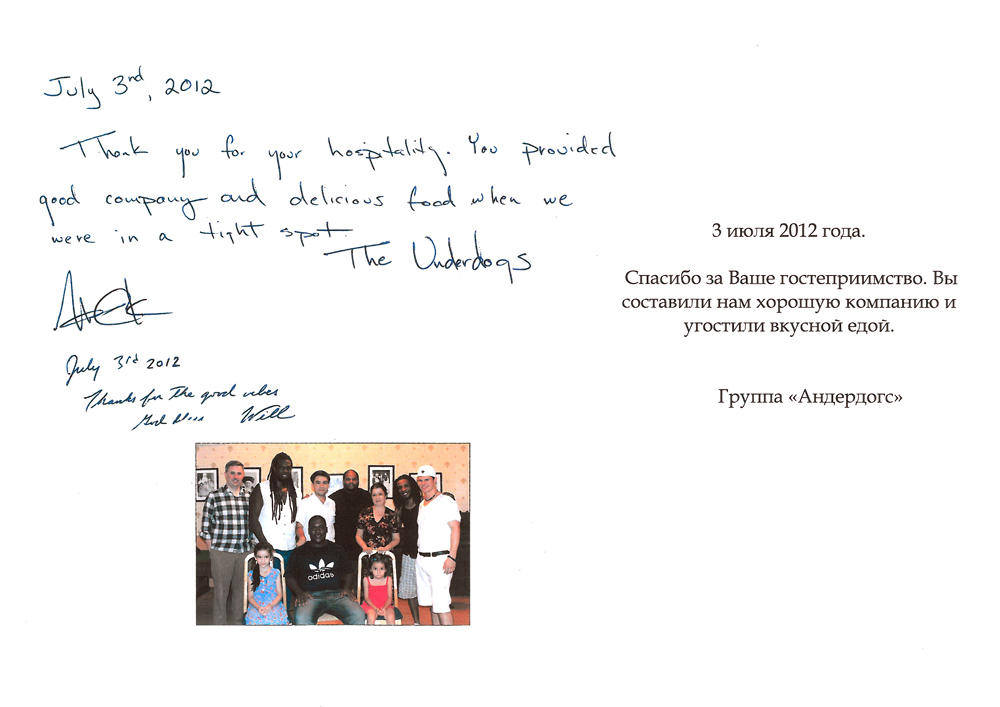 July 3nd, 2012
Thank you for your hospitality. You provided
good company and delicious food when we
were in a tight spot.
The Underdogs
July 3rd 2012
Thanks for the good vibes
God bless Will
adidas
3 июля 2012 года.
Спасибо за Ваше гостеприимство. Вы
составили нам хорошую компанию и
угостили вкусной едой.
Группа «Андердогс»